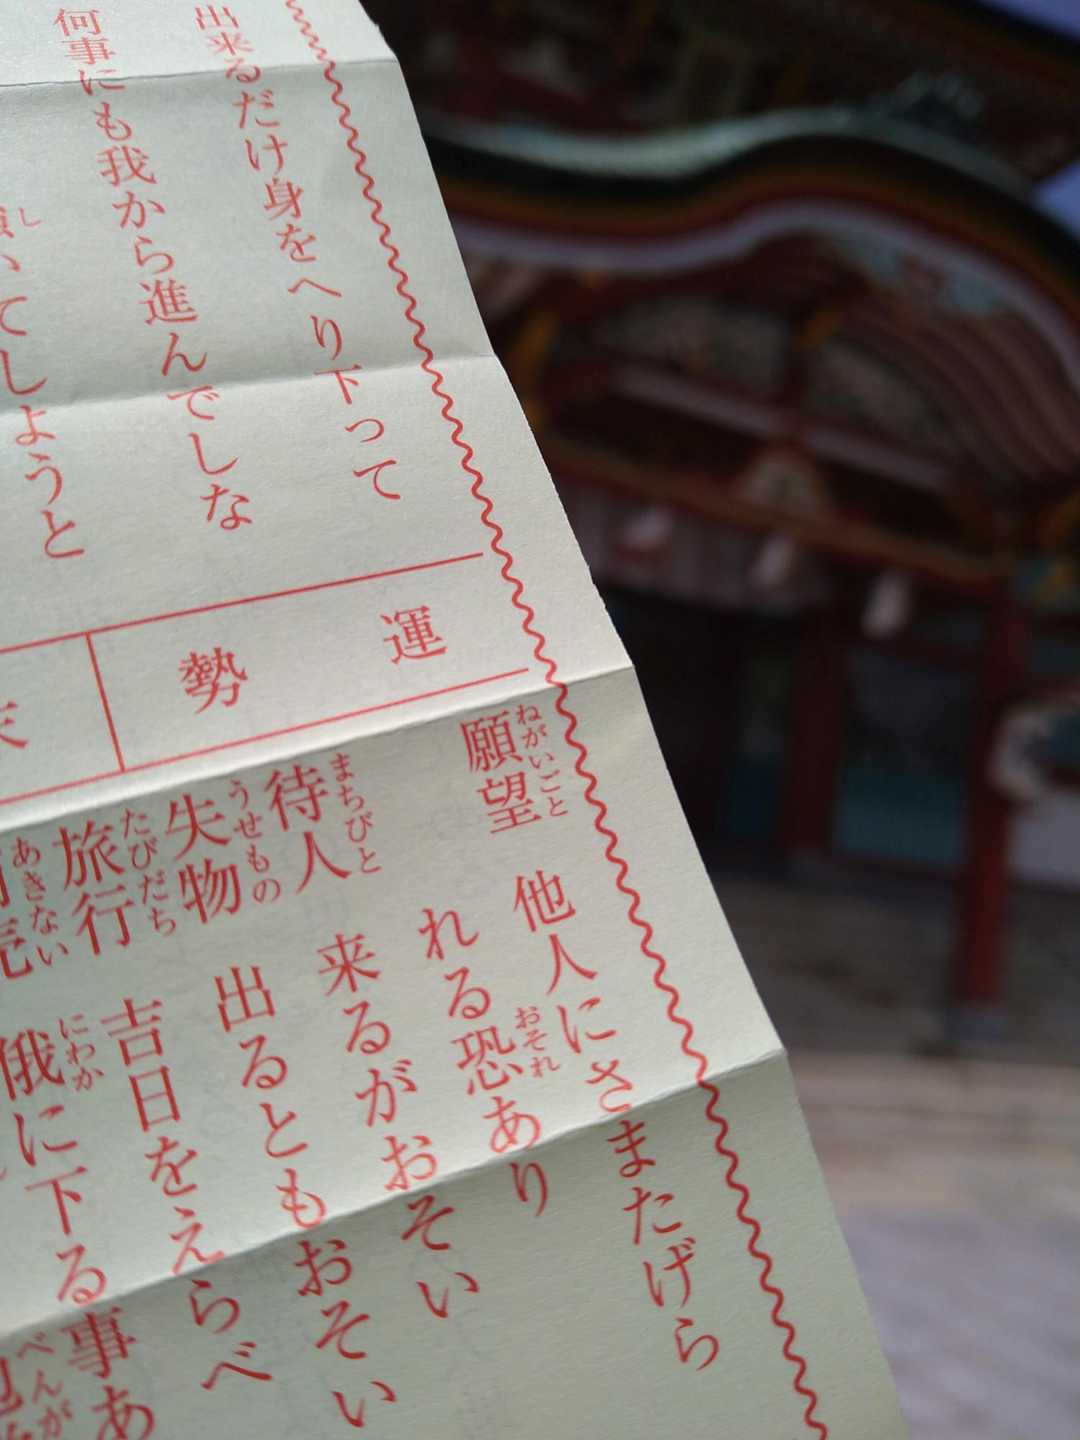 出来るだけ身をへり下って
何事にも我から進んでしな
いてしようと
運勢
願望 ねがいごと
他人にさまたげら
れる恐あり おそれ
待人 まちびと
来るがおそい
失物 うせもの
出るともおそい
旅行 たびだち
吉日をえらべ
あきない
俄に下る事あ にわか
べんが